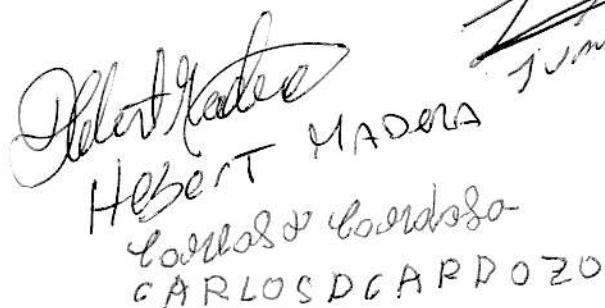 Hebert Madera
HEBERT MADERA
Carlos D Cardozo
CARLOS D CARDOZO